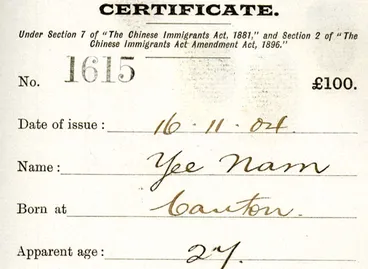 CERTIFICATE.
Under Section 7 of "The Chinese Immigrants Act, 1881," and Section 2 of "The
Chinese Immigrants Act Amendment Act, 1896."
No. 1615 £100.
Date of issue : 16 · 11 · 04.
Name : Yee Nam
Born at Canton.
Apparent age : 27.